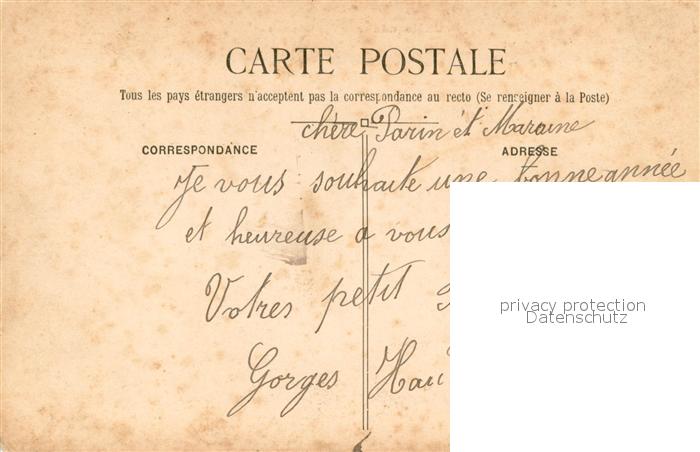 CARTE POSTALE
Tous les pays étrangers n'acceptent pas la correspondance au recto (Se renseigner à la Poste)
chère Parin et Maraine
CORRESPONDANCE
ADRESSE
Je vous souhaite une bonne année
et heureuse a vous
Votres petit
Gorges Hau
privacy protection
Datenschutz